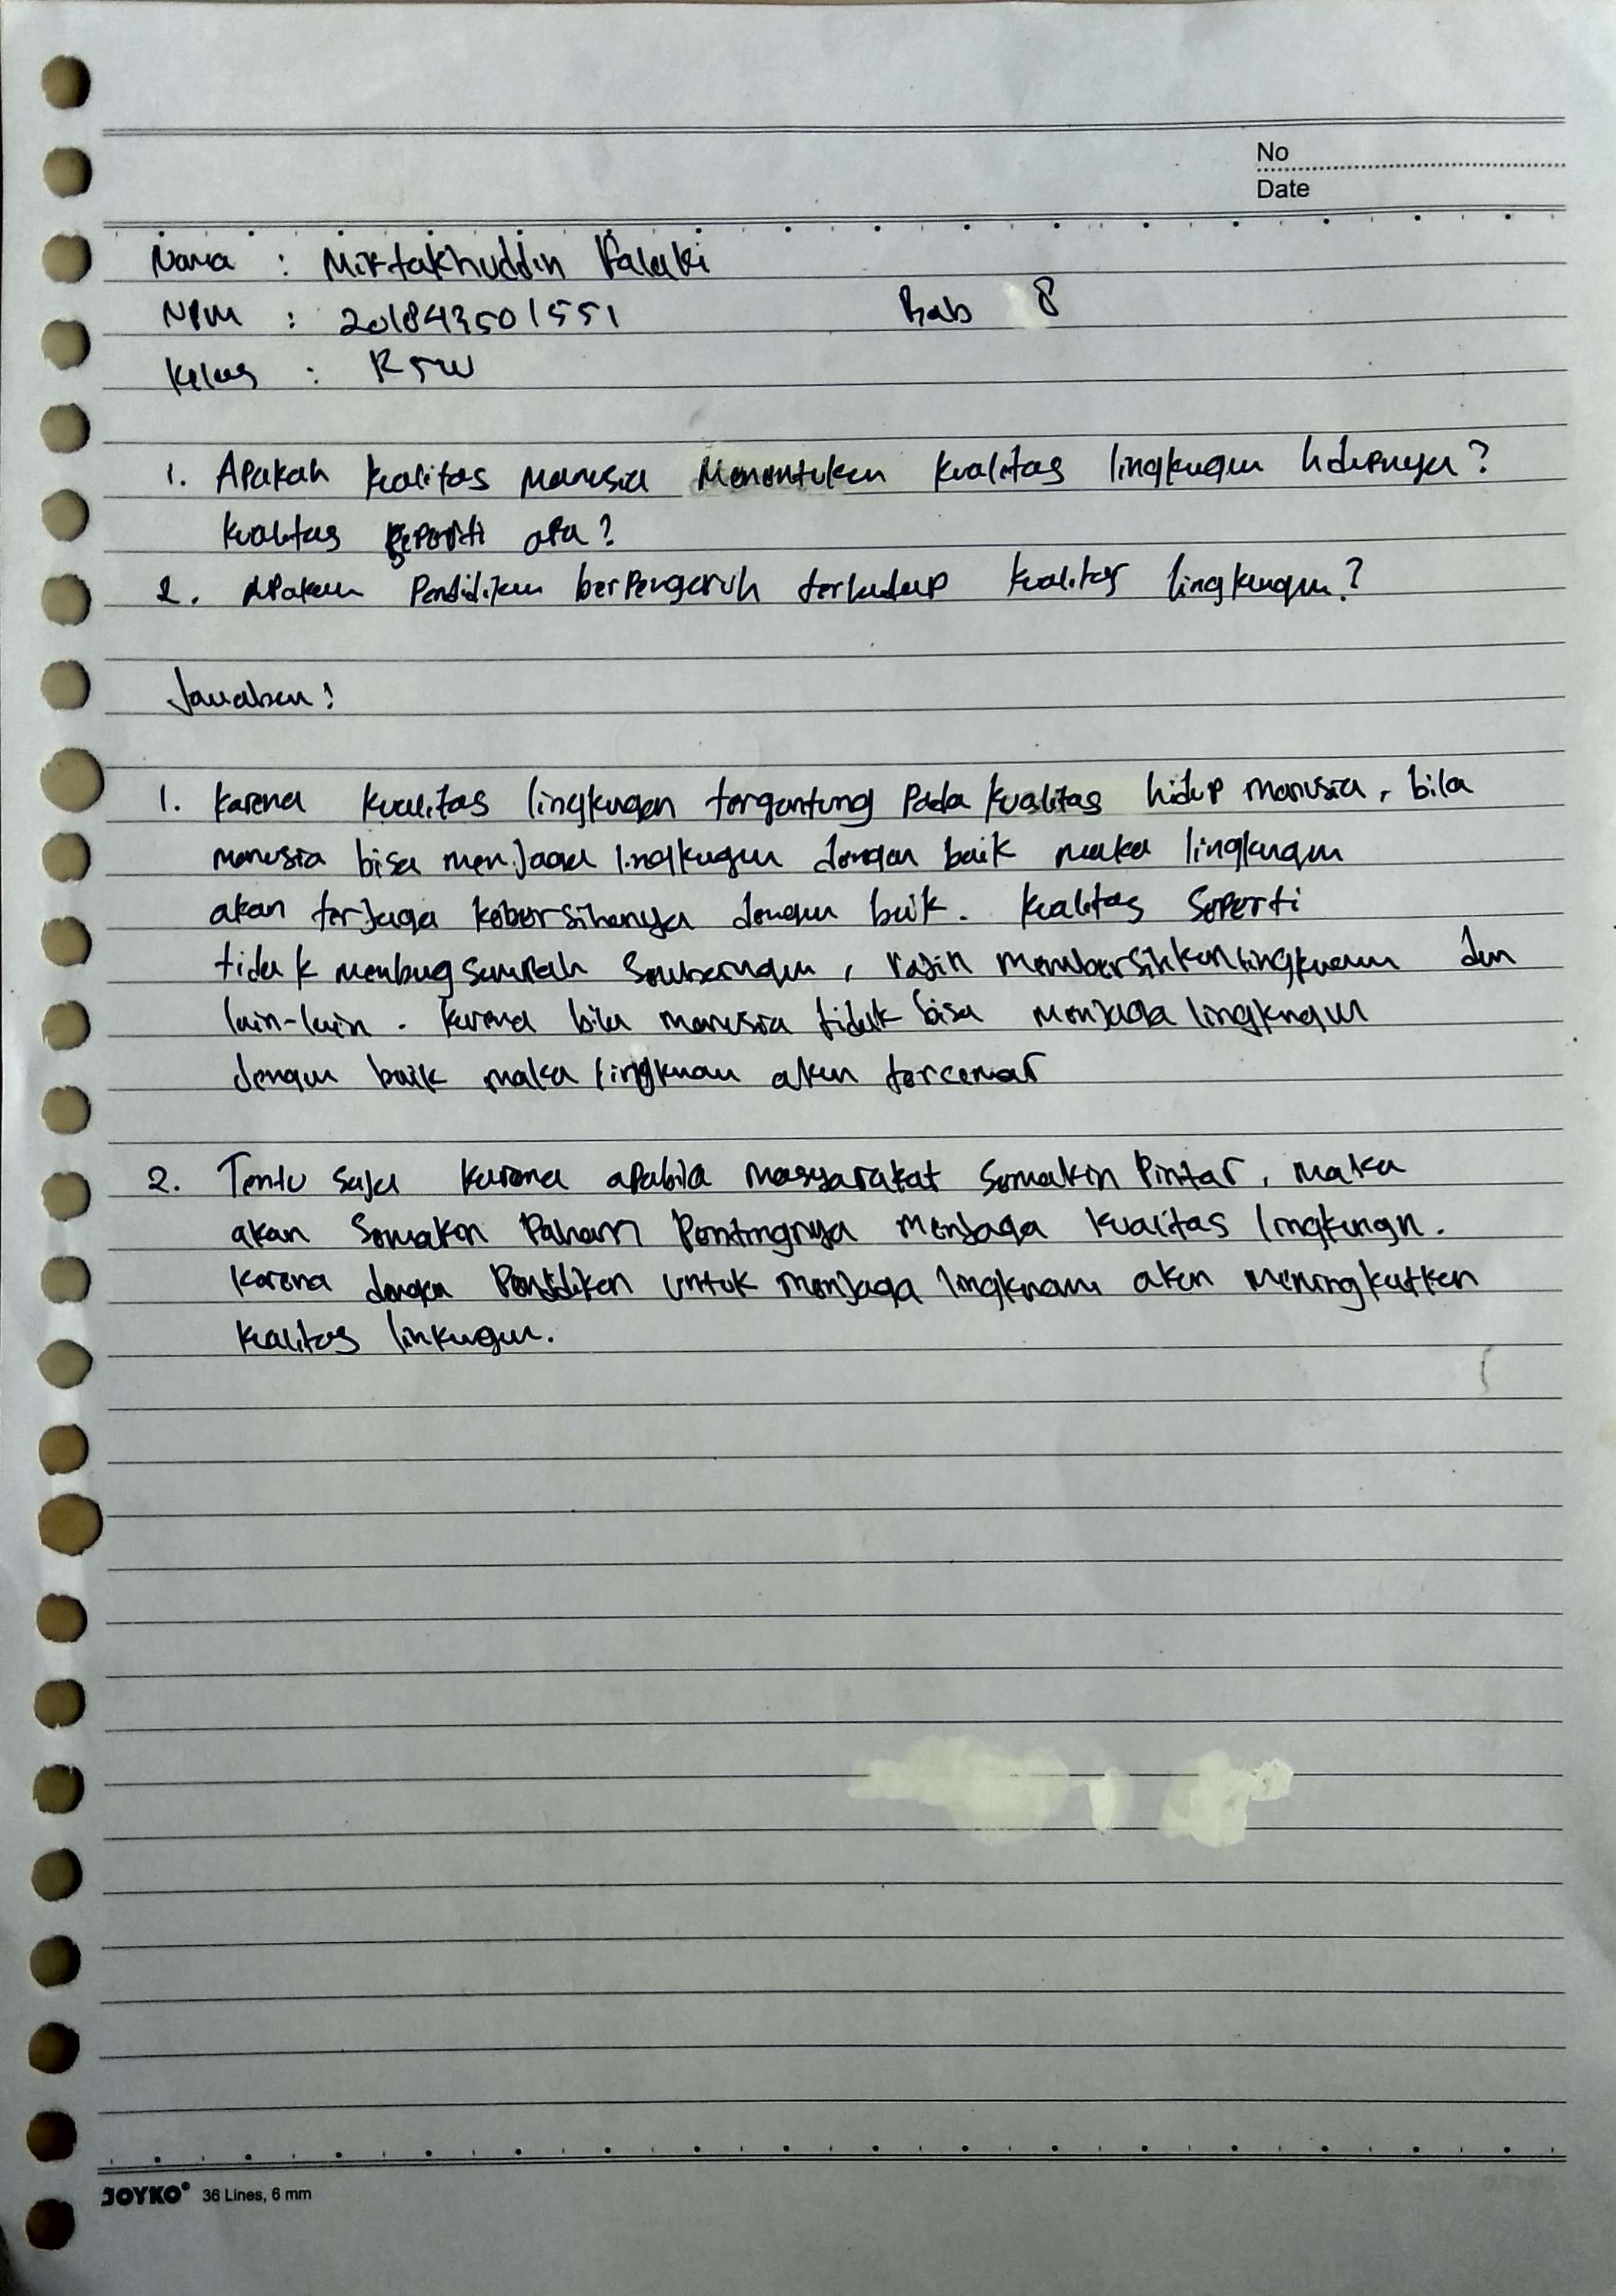 No
Date
Nama : Miftakhuddin Falaki
NPM : 201843501551 Bab 8
Kelas : R5W
1. Apakah kualitas manusia Menentukan kualitas lingkugan hidupnya?
kualitas seperti apa?
2. Apakah Pendidikan berpengaruh terhadap kualitas lingkungan?
Jawaban:
1. karena kualitas lingkugan tergantung Pada kualitas hidup manusia, bila
manusia bisa menjaga lingkugan dengan baik maka lingkugan
akan terjaga kebersihanya dengan baik. kualitas Seperti
tidak membuag sampah sembarngan, rajin membersihkan lingkuan dan
lain-lain. karena bila manusia tidak bisa menjaga lingkngan
dengan baik maka lingkuan akan tercemar
2. Tentu saja karena apabila masyarakat Semakin Pintar, maka
akan Semakin Paham Pentingnya Menjaga kualitas lingkungn.
karena dengan Pendidikan untuk menjaga lingkuan akan meningkatkan
kualitas linkugan.
JOYKO 36 Lines, 6 mm